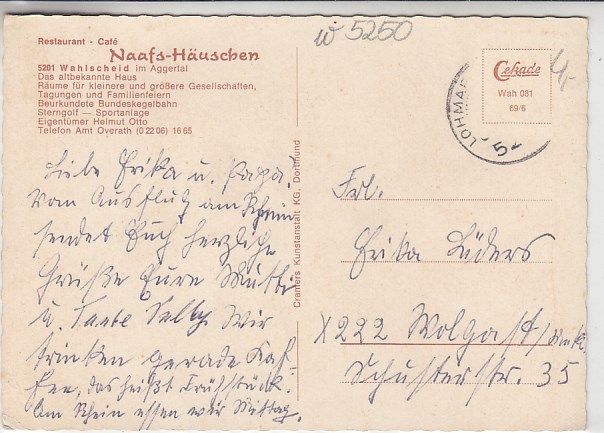 w 5250
Restaurant - Café
Naafs-Häuschen
5201 Wahlscheid im Aggertal
Das altbekannte Haus
Räume für kleinere und größere Gesellschaften,
Tagungen und Familienfeiern
Beurkundete Bundeskegelbahn
Sterngolf — Sportanlage
Eigentümer Helmut Otto
Telefon Amt Overath (0 22 06) 16 65
Liebe Erika u. Papa!
Vom Ausflug am Rhein
sendet Euch herzliche
Grüße Eure Mutti
u. Tante Selly. Wir
trinken gerade Kaf-
fee, das heißt Frühstück.
Am Rhein essen wir Mittag.
Cramers Kunstanstalt KG, Dortmund
Cekade
Wah 081
69/6
LOHMA
52
Frl.
Erika Lüders
X222 Wolgast/
Schusterstr. 35